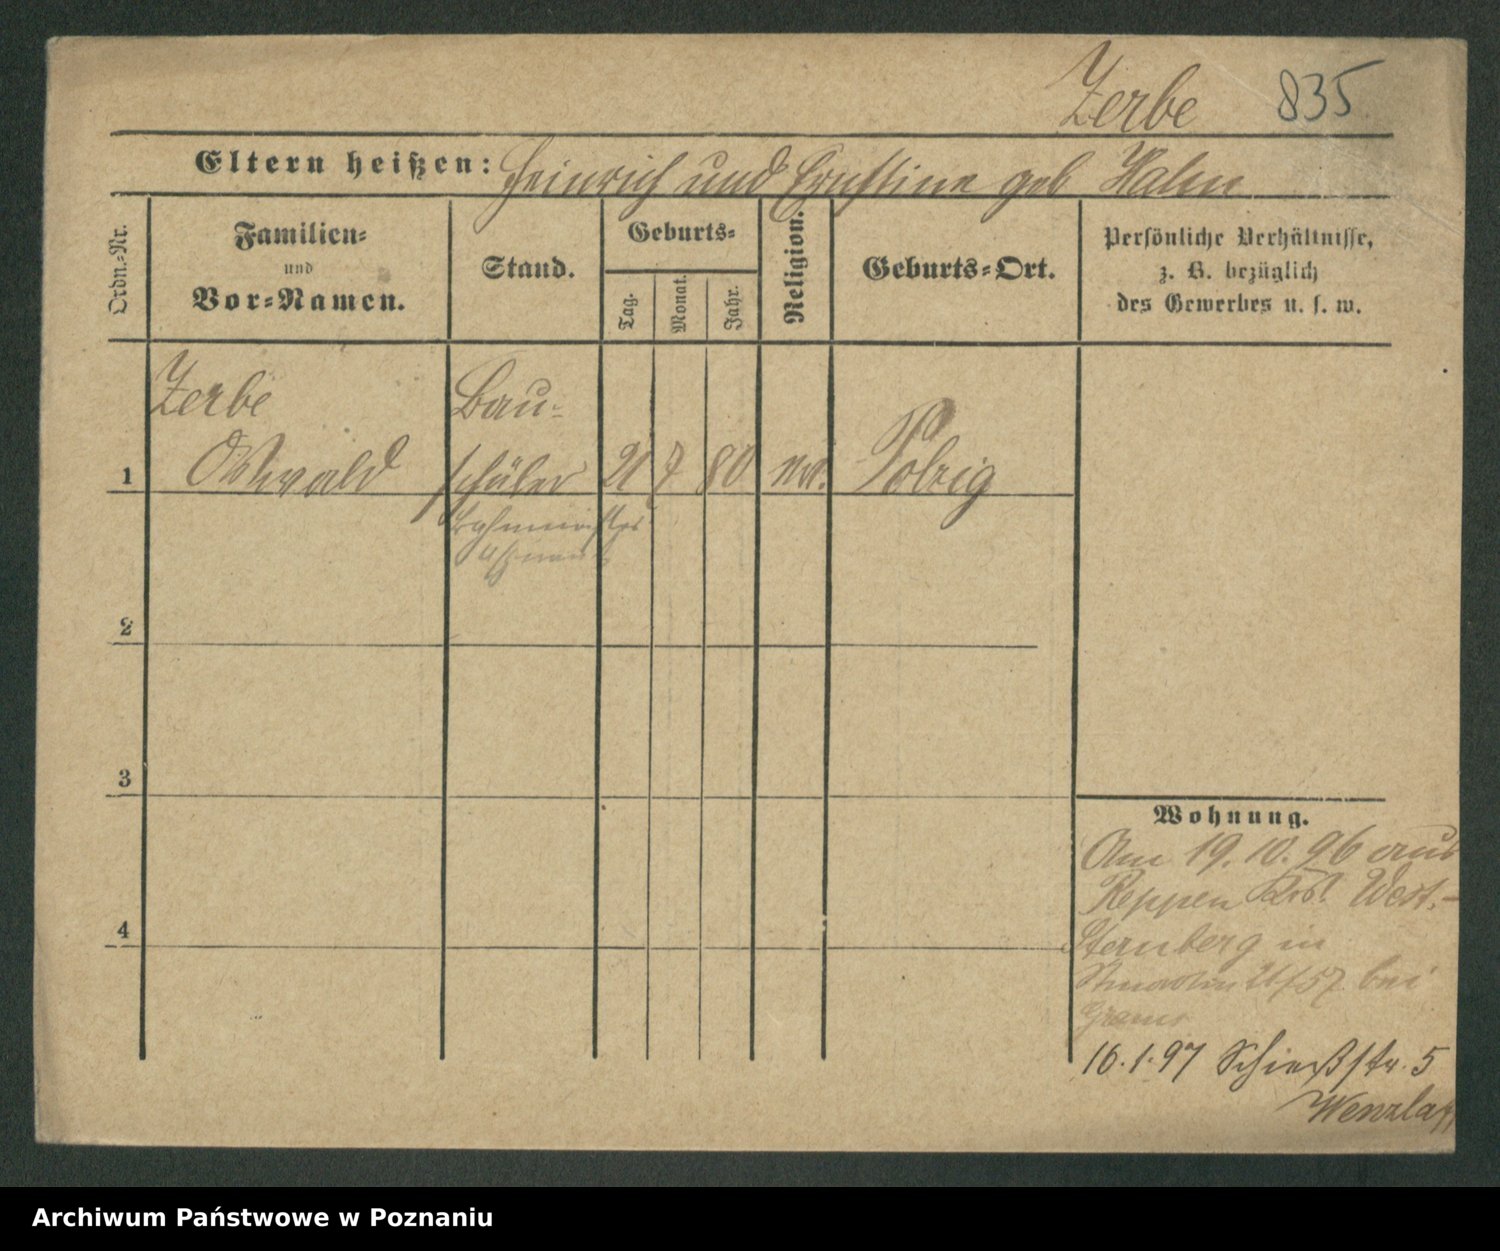 Zerbe 835
Eltern heißen: Heinrich und Ernstine geb Halm
Ordn.-Nr.
Familien-
und
Vor-Namen.
Stand.
Geburts-
Tag.
Monat.
Jahr.
Religion.
Geburts-Ort.
Persönliche Verhältnisse,
z. B. bezüglich
des Gewerbes u. s. w.
Zerbe Bau-
1 Oswald schüler 21 7 80 Polzig
2
3
4
Wohnung.
Am 19. 10. 96 aus
Reppen Krs. West.-
Sternberg in
bei
16.1.97 Schießstr. 5
Wenzlaff
Archiwum Państwowe w Poznaniu